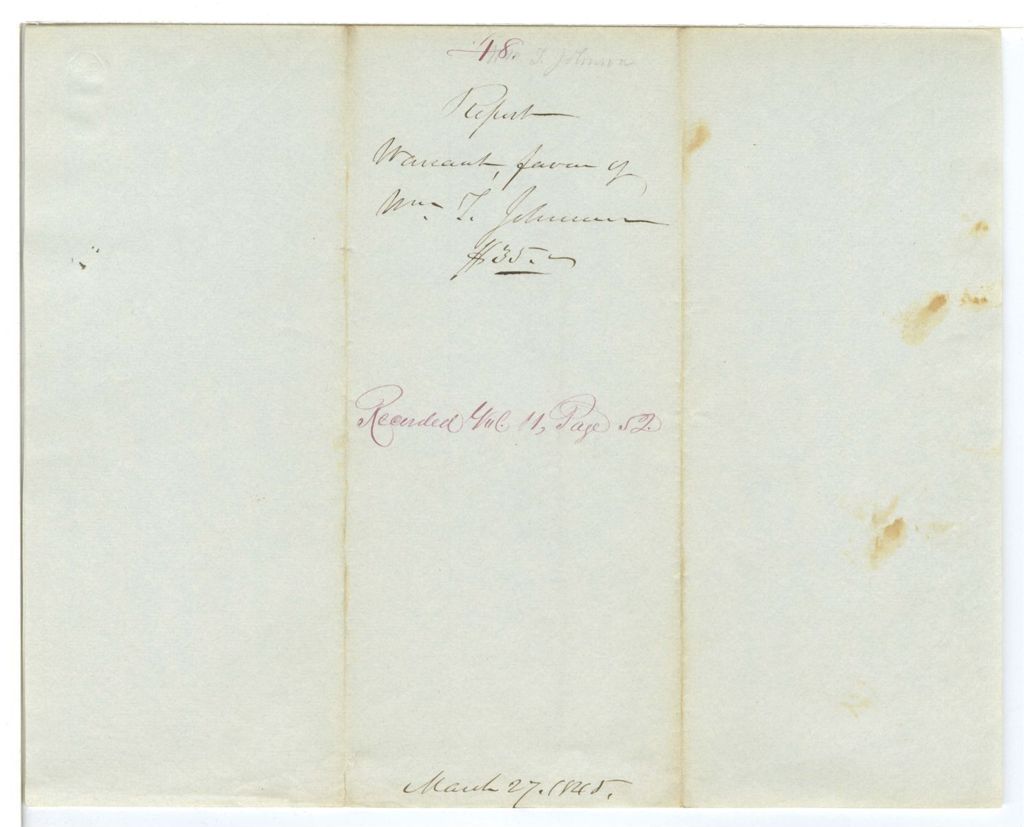 18. Wm. T. Johnson
Report
Warrant, favor of
Wm. T. Johnson
$35.
Recorded Vol. 11, Page 52
March 27. 1845.